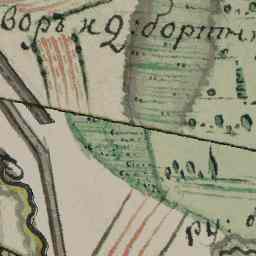 воръ и Q: бортн
ру: б